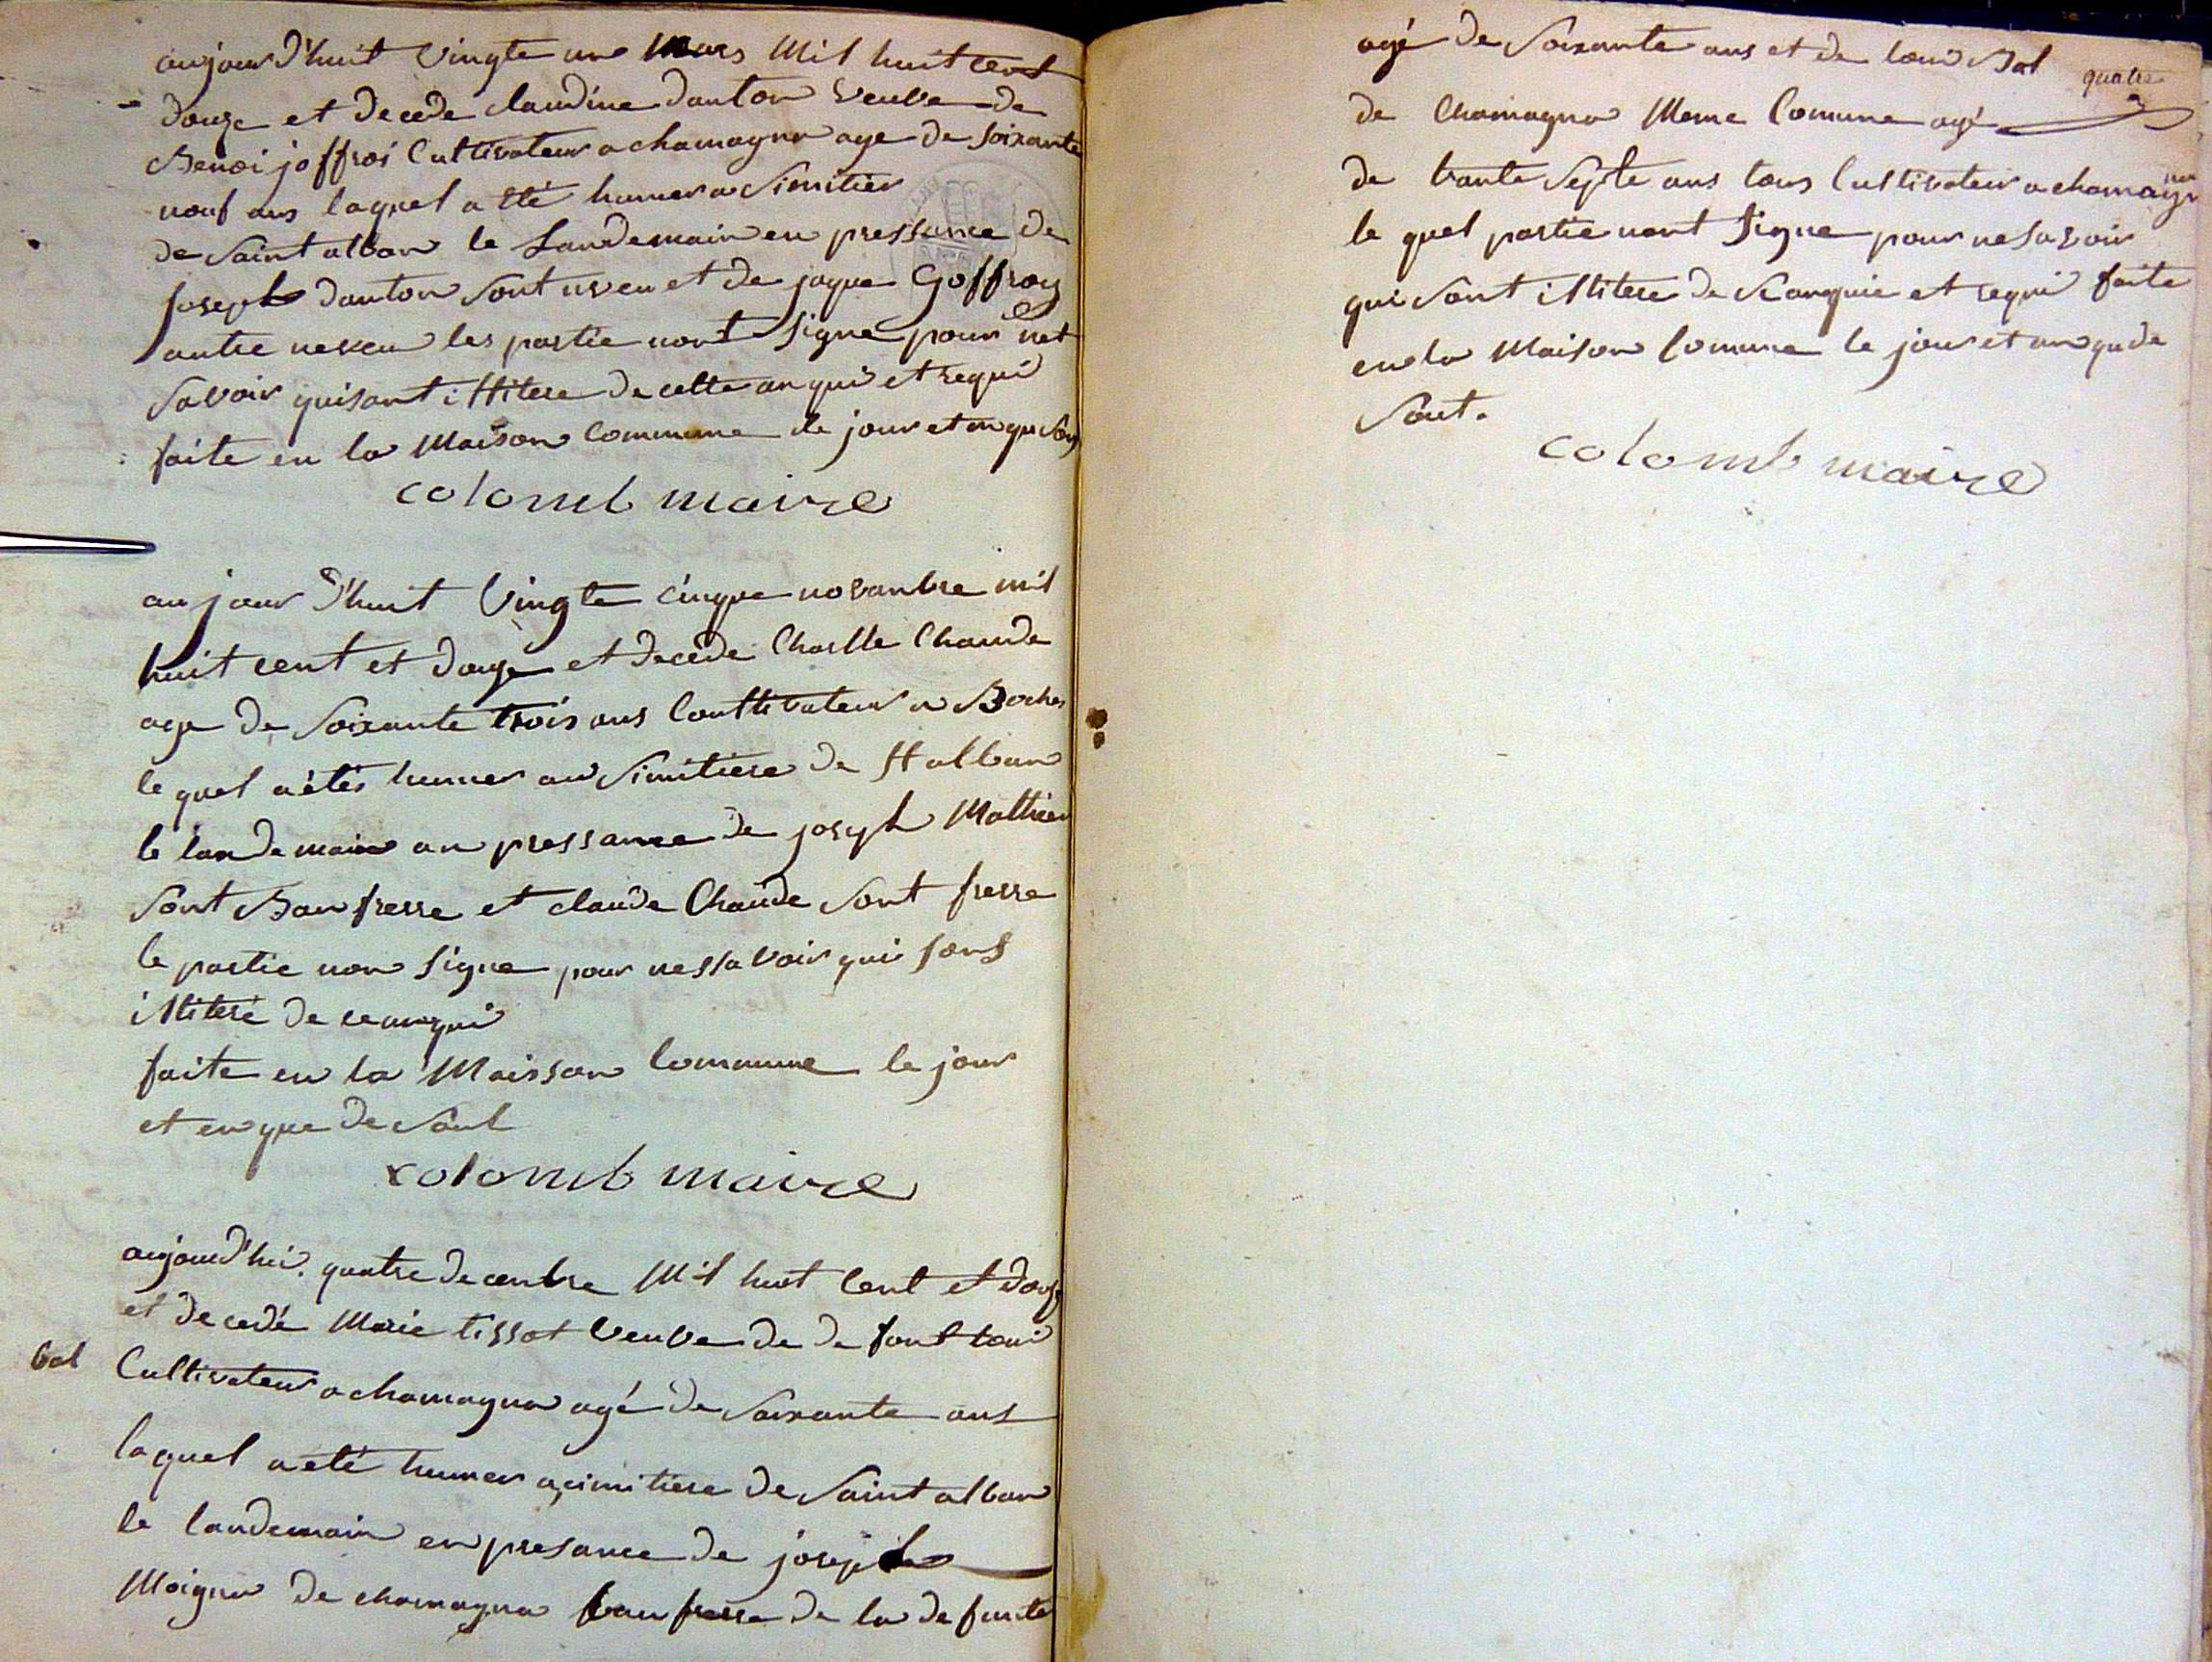 aujourd'huit vingte un Mars Mil huit cent
douze et decede claudine danton veuve de
Benoi joffroi Cultivateur a chamagna age de soixante
nouf ans laquel a été humer a simitier
de saint alban le Landemain en pressance de
joseph danton sont neveu et de jaque Goffroy
autre neveu les partie nont signe pour net
savoir quisont illitere de cette anqui et requi
faite en la Maison Commune le jour et an que sou
colomb maire
au jour d'huit vingte cinque novanbre mil
huit cent et douze et decede Charlle Chaude
age de soixante trois ans Couttivateur a Boches
le quel a étés humer au simitiere de St alban
le landemain an pressance de joseph Mathieu
sont Baufrerre et claude Chaude sont frerre
le partie non signe pour nessavoir qui sont
illiteré de ceanqui
faite en la Maisson Commune le jour
et en que de sout
colomb maire
aujourd'hui quatre decenbre Mil huit Cent et douze
et decedé Marie tissot veuve de defont loui
bal
Cultivateur a chamagna agé de soixante ans
laquel a été humer a cimitiere de saint alban
le landemain en presance de joseph
Moigna de chamagna baufrerre de la defunte
quatre
agé de soixante ans et de loui Bal
de Chamagna Meme Comune agé
de trante septe ans tous Cultivateur a chamagna
le quel partie nont signe pour ne savoir
qui sont illitere de seanquie et requi faite
en la Maison Comune le jour et an que de
sout.
colomb maire